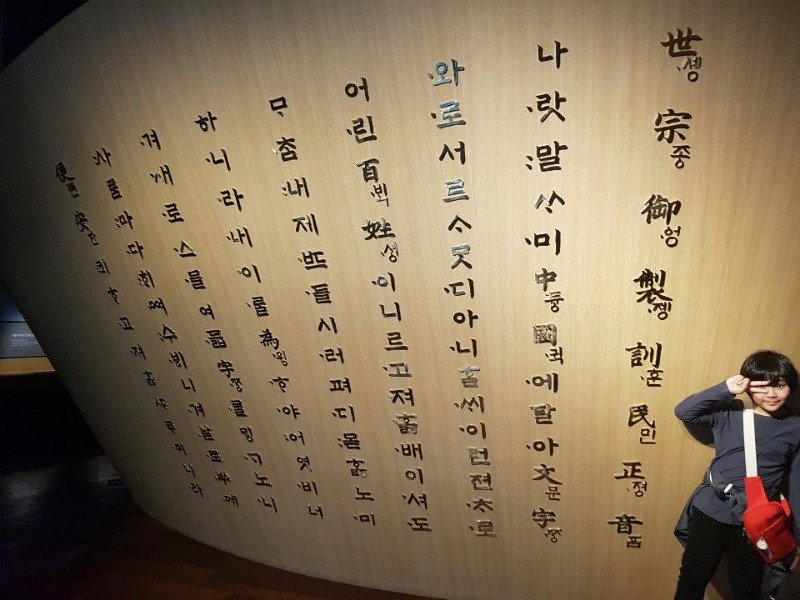 世·솅宗종御·엉製·젱訓·훈民민正·졍音ᅙᅳᆷ
나·랏:말ᄊᆞ·미中듕國·귁·에달·아文문字·ᄍᆞᆼ
·와·로서르ᄉᆞᄆᆞᆺ·디아·니ᄒᆞᆯ·ᄊᆡ·이런젼·ᄎᆞ·로
어·린百·ᄇᆡᆨ姓·셩·이니르·고·져·호ᇙ·배이·셔·도
ᄆᆞ·ᄎᆞᆷ:내제·ᄠᅳ·들시·러펴·디:몯ᄒᆞᇙ·노·미
하·니·라·내·이·ᄅᆞᆯ為·윙·ᄒᆞ·야:어엿·비너
겨·새·로·스·믈여·듧字·ᄍᆞᆼ·ᄅᆞᆯᄆᆡᇰ·ᄀᆞ노·니
:사ᄅᆞᆷ:마·다:ᄒᆡ·ᅇᅧ:수·ᄫᅵ니·겨·날·로·ᄡᅮ·메
便뼌安ᅙᅡᆫ·킈ᄒᆞ·고·져ᄒᆞᇙᄯᆞᄅᆞ·미니·라